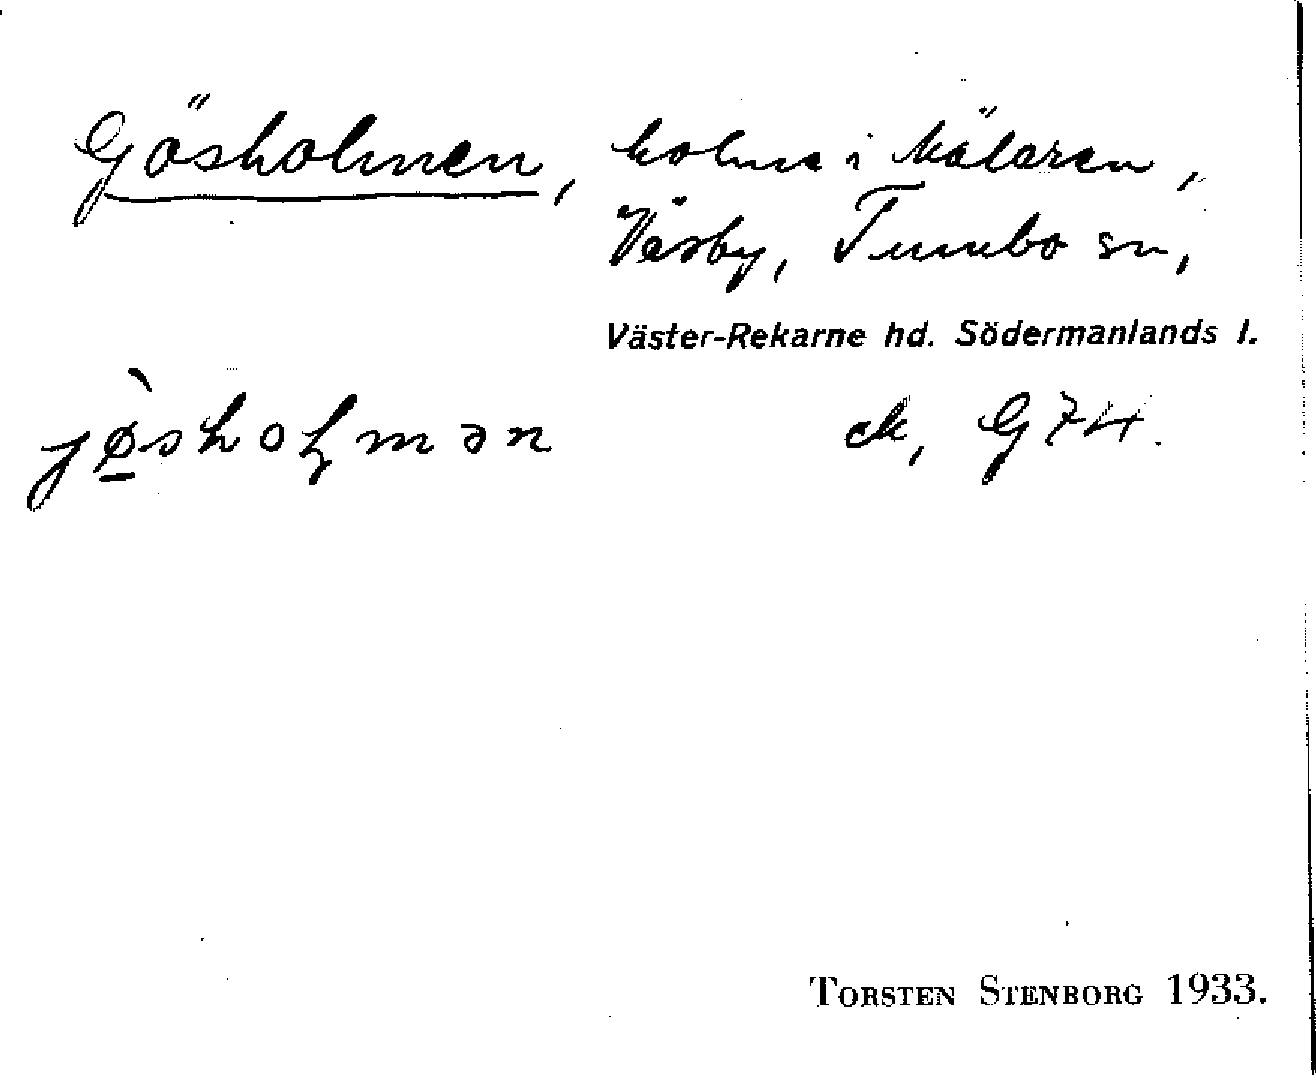 Gösholmen, holme i Mälaren,
Väsby, Tumbo sn,
Väster-Rekarne hd. Södermanlands l.
jø̀sholmən ek, G74.
TORSTEN STENBORG 1933.